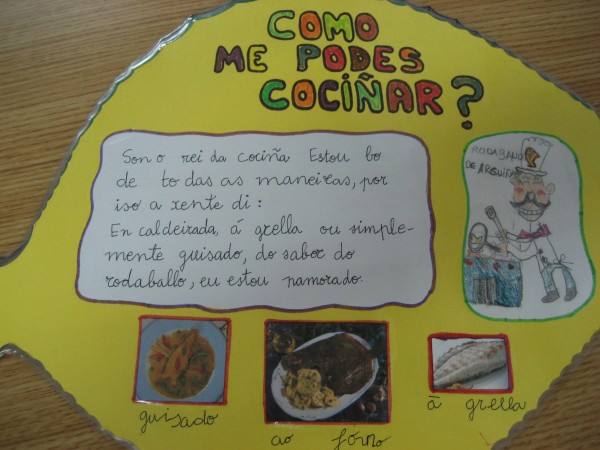 COMO
ME PODES
COCIÑAR?
Son o rei da cociña. Estou bo
de todas as maneiras, por
iso a xente di:
En caldeirada, á grella ou simple-
mente guisado, do sabor do
rodaballo, eu estou namorado.
RODABALLO
DE ARGUIÑA
guisado
ao forno
á grella